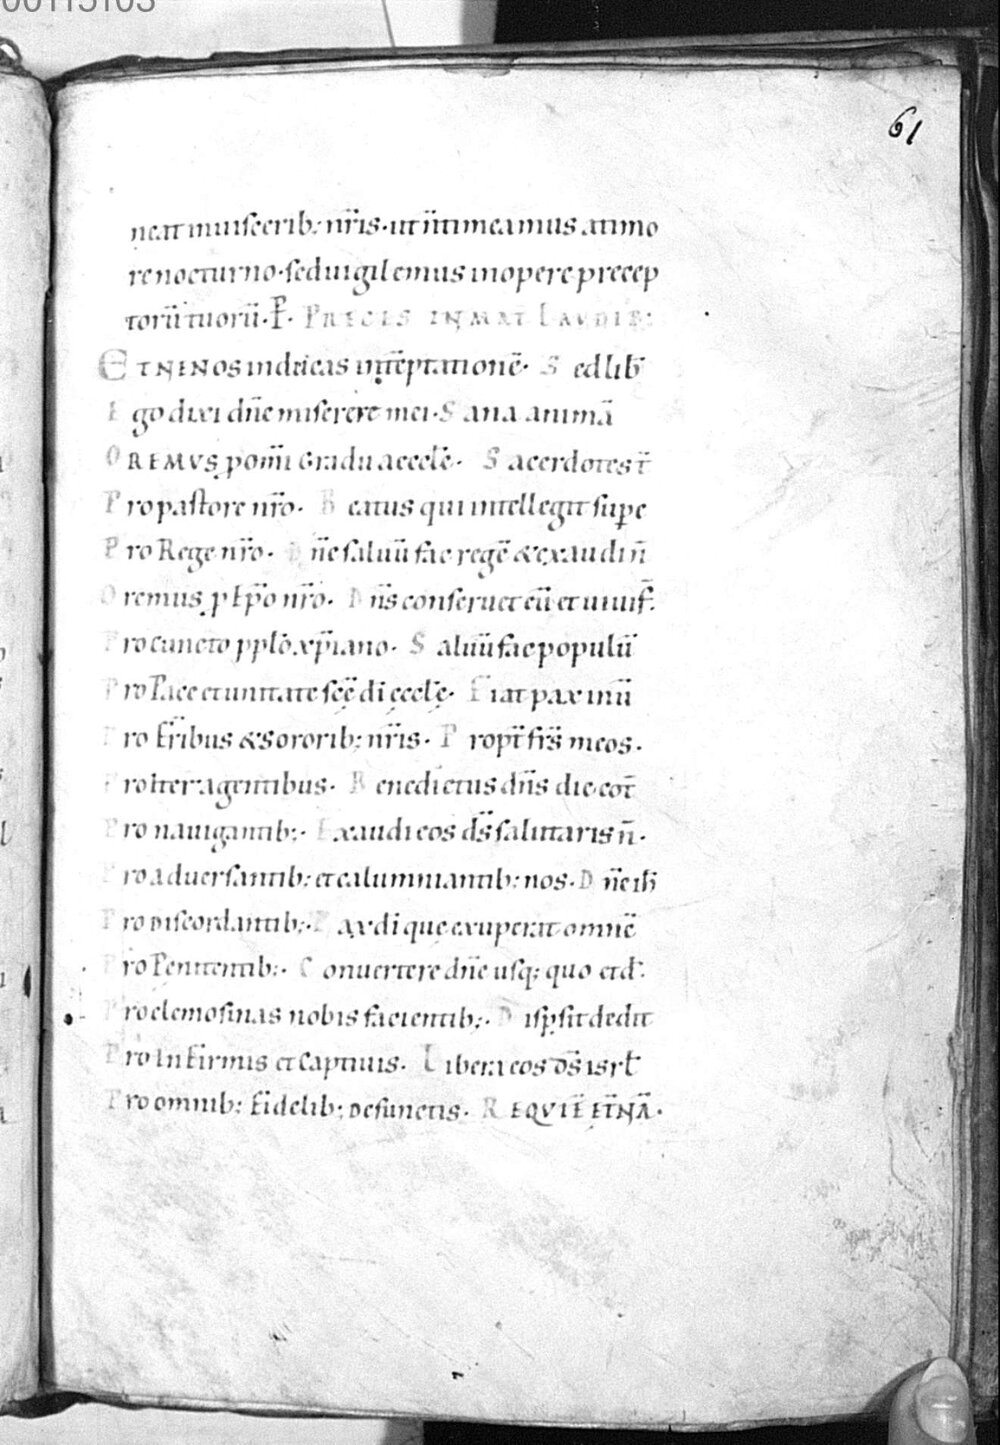 00115103
61
neat inuiscerib: nr̄is· ut n̄ timeamus a timo
re nocturno· sed uigilemus in opere precep
torū tuorū· P̄· PRECES IN MAT LAUDIB:
ET NE NOS inducas in tēptationē· Sed lib̄
Ego dixi dn̄e miserere mei· Sana animā
OREMVS p om̄i Gradu aeccle· Sacerdotes t̄
Pro pastore nr̄o· Beatus qui intellegit supe
Pro Rege nr̄o· Dn̄e saluū fac regē & exaudi n̄
Oremus p Ep̄o nr̄o· Dn̄s conseruet eū et uiuif̄·
Pro cuncto pplo xp̄iano· Saluū fac populū
Pro Pace et unitate sc̄ę di ęccle· Fiat pax in ū
Pro Fr̄ibus & sororib: nr̄is· Propt̄ fr̄s meos·
Pro Iter agentibus· Benedictus dn̄s die cot̄
Pro nauigantib:· Exaudi eos ds̄ salutaris n̄·
Pro aduersantib: et calumniantib: nos· Dn̄e ih̄
Pro Discordantib:· Pax di que exuperat omnē
Pro Penitentib:· Conuertere dn̄e usq; quo et d·
Pro elemosinas nobis facientib:· Dispsit dedit
Pro Infirmis et Captiuis· Libera eos ds̄ isrl̄
Pro omnib: Fidelib: Defunctis· REQVIĒ ET̄NĀ·